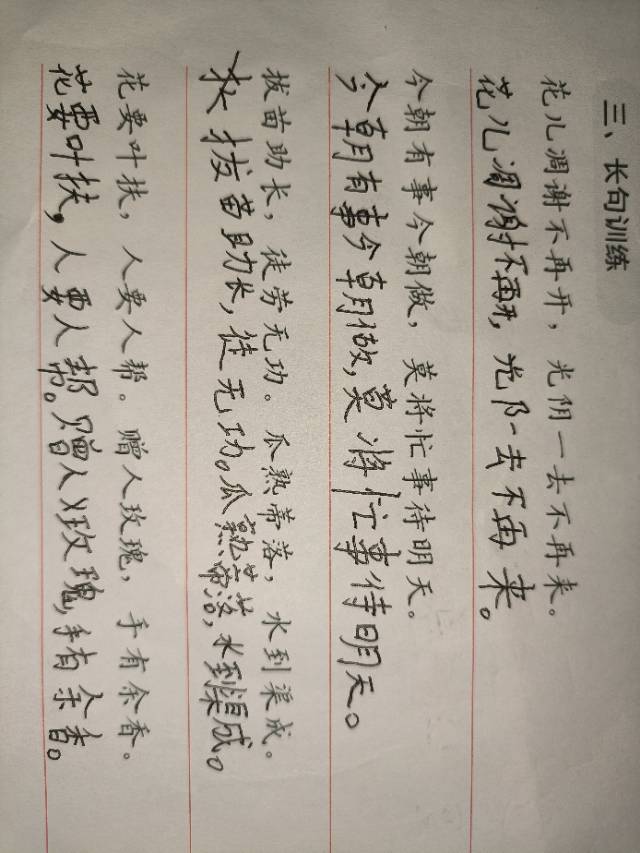 三、长句训练
花儿凋谢不再开，光阴一去不再来。
花儿凋谢不再开，光阴一去不再来。
今朝有事今朝做，莫将忙事待明天。
今朝有事今朝做，莫将忙事待明天。
拔苗助长，徒劳无功。瓜熟蒂落，水到渠成。
拔苗助长，徒无功。瓜熟蒂落，水到渠成。
花要叶扶，人要人帮。赠人玫瑰，手有余香。
花要叶扶，人要人帮。赠人玫瑰，手有余香。